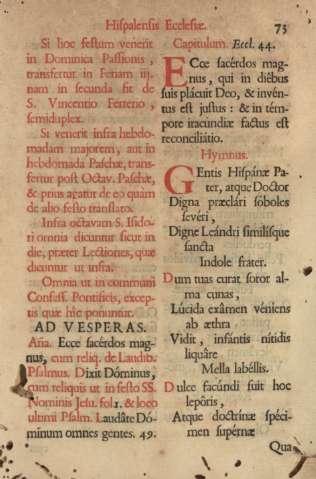 Hispalensis Ecclesiæ. 73
Si hoc festum venerit
in Dominica Passionis,
transfertur in Feriam iij.
nam in secunda fit de
S. Vincentio Ferrerio,
semiduplex.
Si venerit infra hebdo-
madam majorem, aut in
hebdomada Paschæ, trans-
fertur post Octav. Paschæ,
& prius agatur de eo quàm
de alio festo translato.
Infra octavam S. Isido-
ri omnia dicuntur sicut in
die, præter Lectiones, quæ
dicuntur ut infra.
Omnia ut in communi
Confess. Pontificis, excep-
tis quæ hîc ponuntur.
AD VESPERAS.
Aña. Ecce sacérdos mag-
nus, cum reliq. de Laudib.
Psalmus. Dixit Dóminus,
cum reliquis ut in festo SS.
Nominis Jesu. fol. 1. & loco
ultimi Psalm. Laudáte Dó-
minum omnes gentes. 49.
Capitulum. Eccl. 44.
Ecce sacérdos mag-
nus, qui in diébus
suis plácuit Deo, & invén-
tus est justus: & in tém-
pore iracúndiæ factus est
reconciliátio.
Hymnus.
Gentis Hispánæ Pa-
ter, atque Doctor
Digna præclári sóboles
sevéri,
Digne Leándri similísque
sancta
Indole frater.
Dum tuas curat soror al-
ma cunas,
Lúcida exâmen véniens
ab æthra
Vidit, infántis nítidis
liquáre
Mella labéllis.
Dulce facúndi fuit hoc
lepóris,
Atque doctrínæ spéci-
men supérnæ
Qua